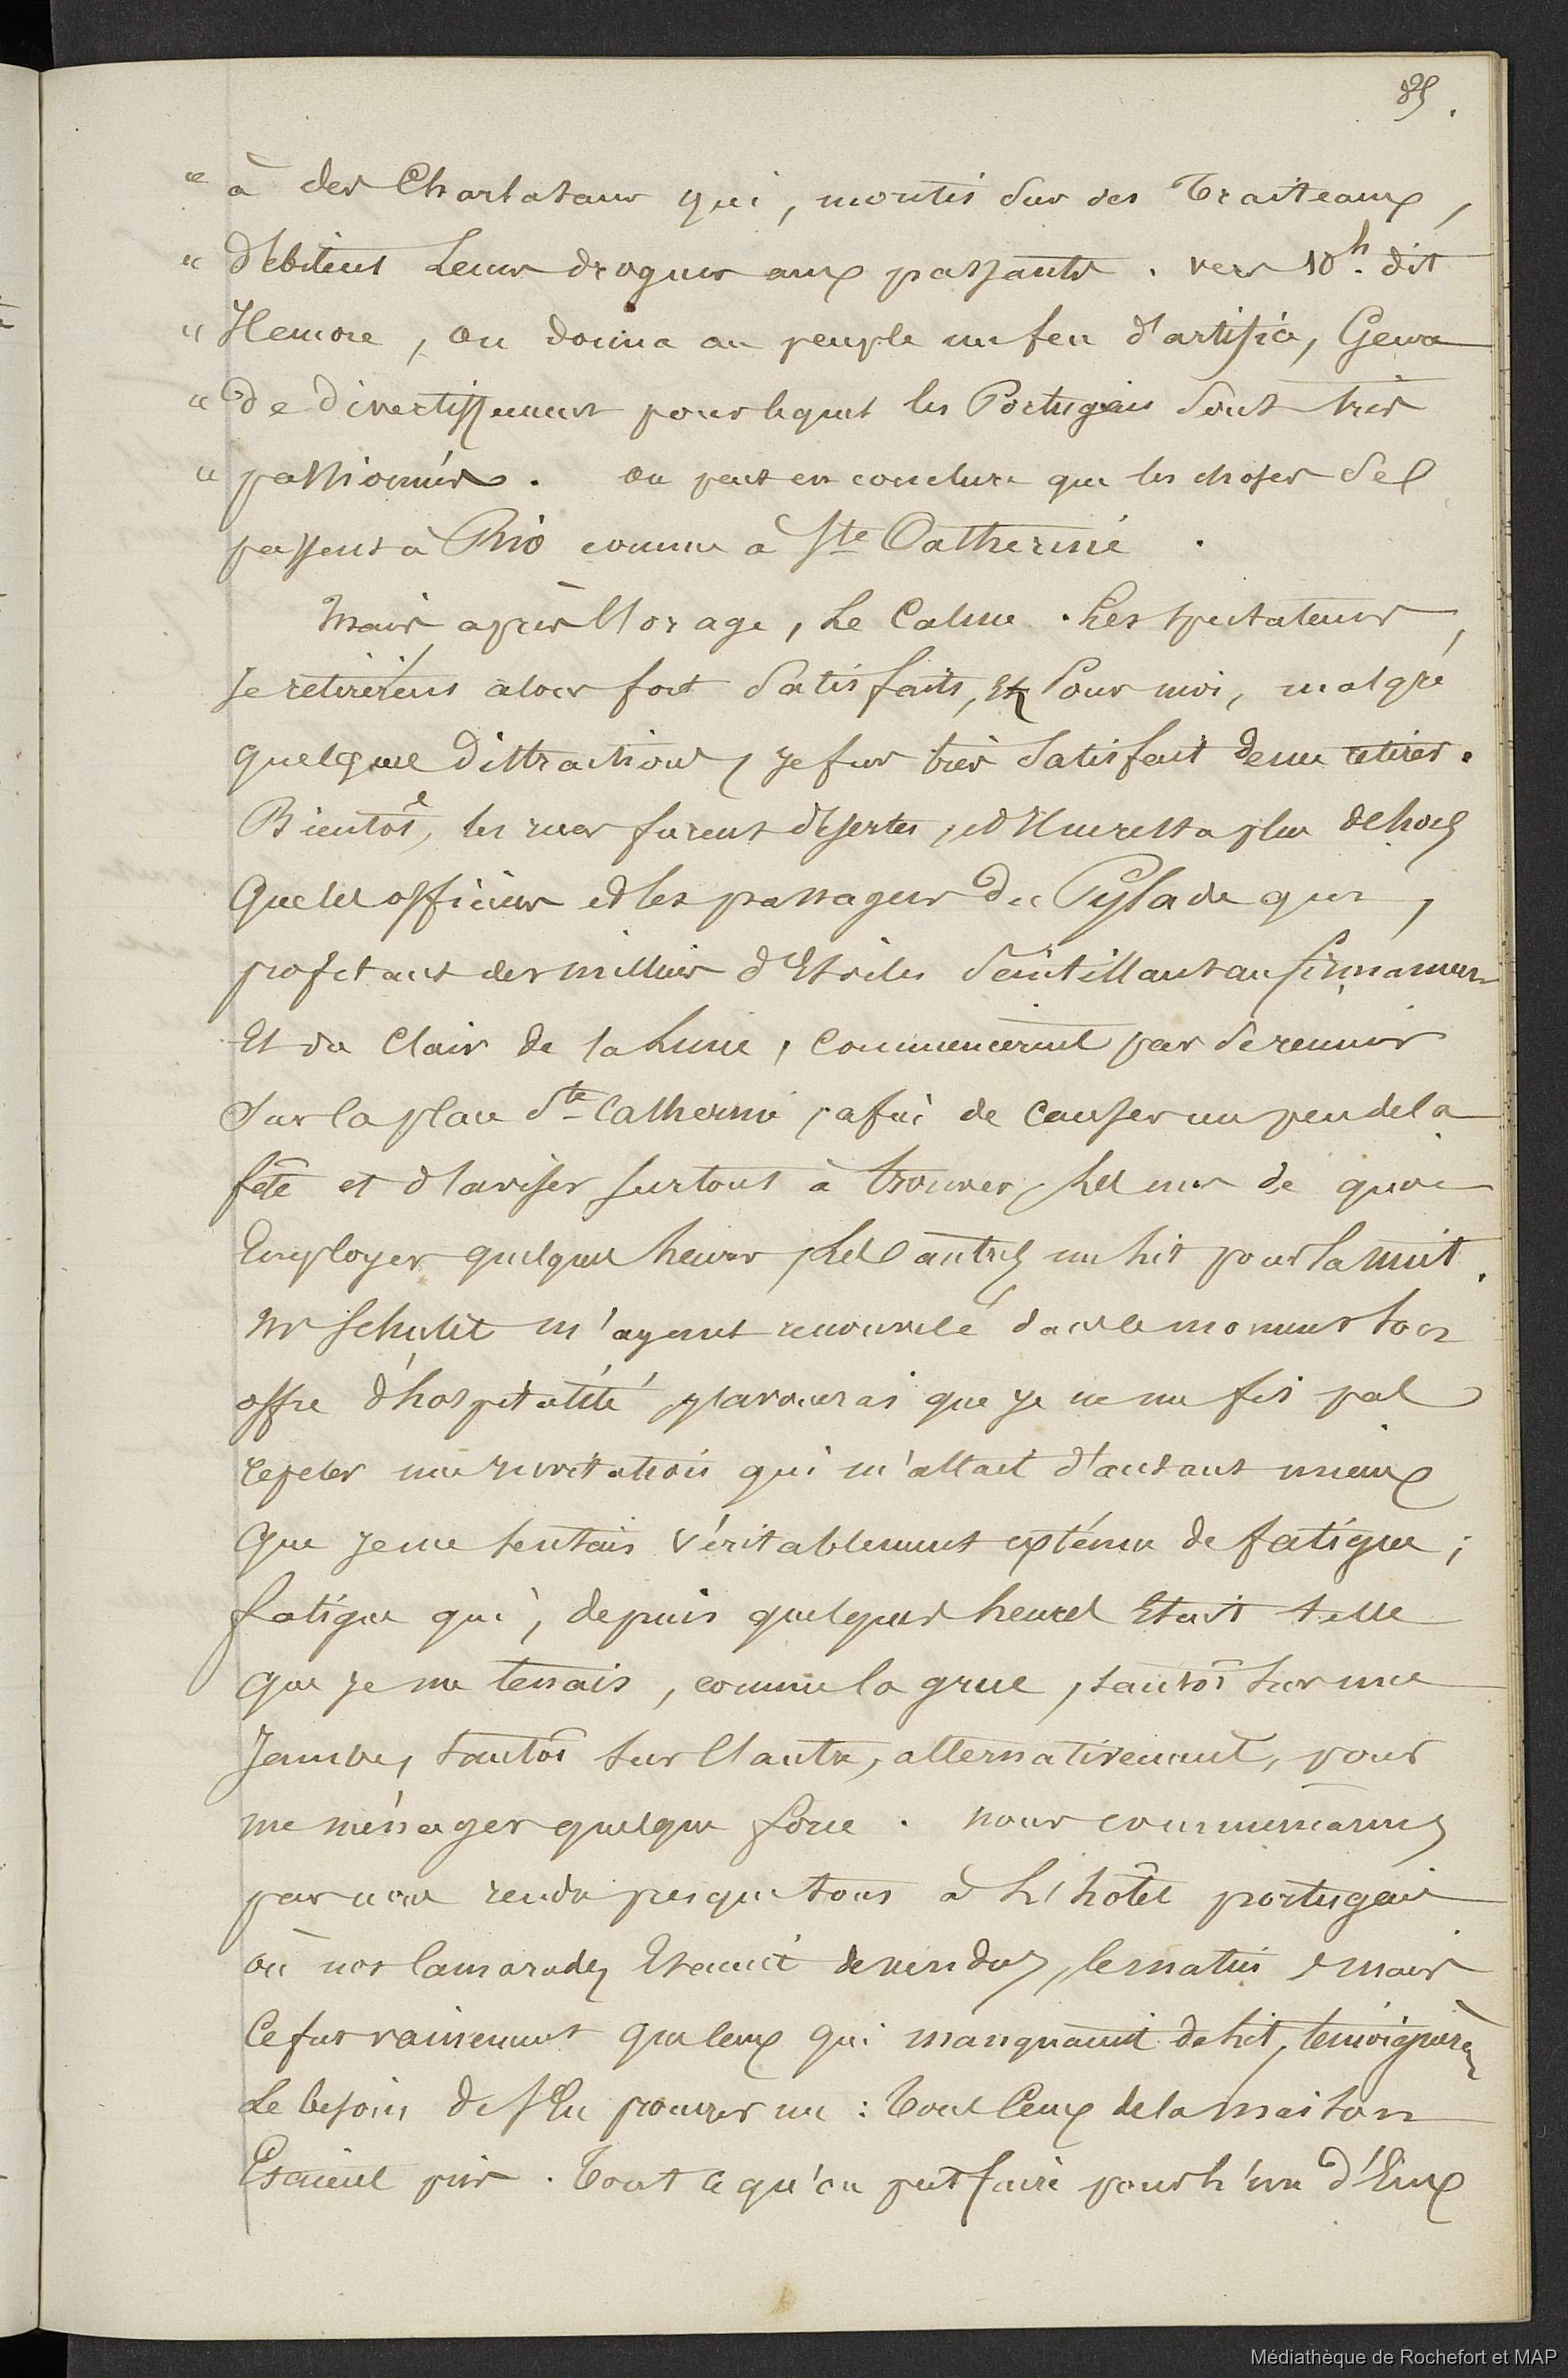 85.
" à des Charlatans qui, montés sur des Traiteaux,
" débitent Leurs drogues aux passants. vers 10h. dit
" Hemore, on donna au peuple un feu d'artifice, Genre
" De Divertissement pour lequel les Portugais Sont très
" passionnés. on peut en conclure que les choses Se
passent à Rio comme à Ste Catherine.
Mais après l'orage, Le Calme. Les spectateurs,
se retirèrent alors fort Satisfaits, Et Pour moi, malgré
quelques Distractions, je fus très Satisfait de me retirer.
Bientôt, les rues furent désertes, et Il ne resta plus dehors
Que les officiers et les passagers Du Pylade qui,
profitant des milliers d'Etoiles Scintillant au firmament
Et du Clair de la Lune, Commencèrent par Se reunir
Sur la place Ste Catherine, afin de Causer un peu de la
fête et d'aviser surtout à trouver, Les uns de quoi
Employer quelques heures, Les autres un lit pour la nuit.
Mr Schutet m'ayant renouvelé dans le moment Son
offre d'hospitalité, j'avouerai que je ne me fis pas
repeter une invitation qui m'allait d'autant mieux
Que je me sentais véritablement exténué de fatigue;
fatigue qui, depuis quelques heures Etait telle
Que je me tenais, comme la grue, tantôt sur une
Jambe, tantôt sur l'autre, alternativement, pour
me ménager quelque force. nous commençames
par nous rendre presque tous à L'hôtel portugais
où nos Camarades Etaient descendus, le matin, mais
Ce fut vainement que ceux qui manquaient de lit, temoignèrent
Le besoin de s'En procurer un : Tous Ceux de la maison
Etaient pris. Tout ce qu'on put faire pour L'un d'Eux
Médiathèque de Rochefort et MAP